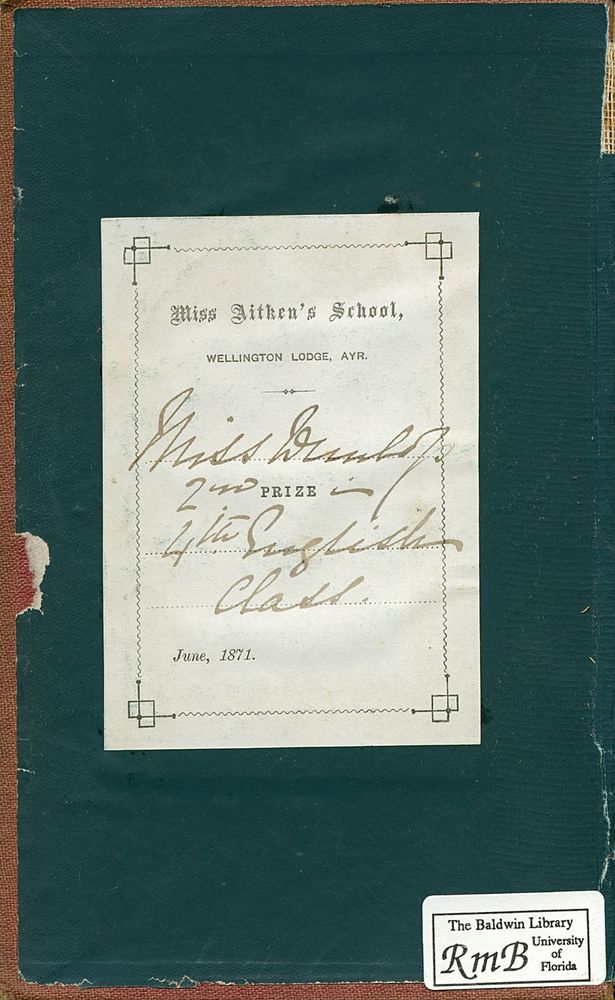 Miss Aitken's School,
WELLINGTON LODGE, AYR.
Miss Dunlop
2nd PRIZE in
4th English
Class.
June, 1871.
The Baldwin Library
RmB University
of
Florida